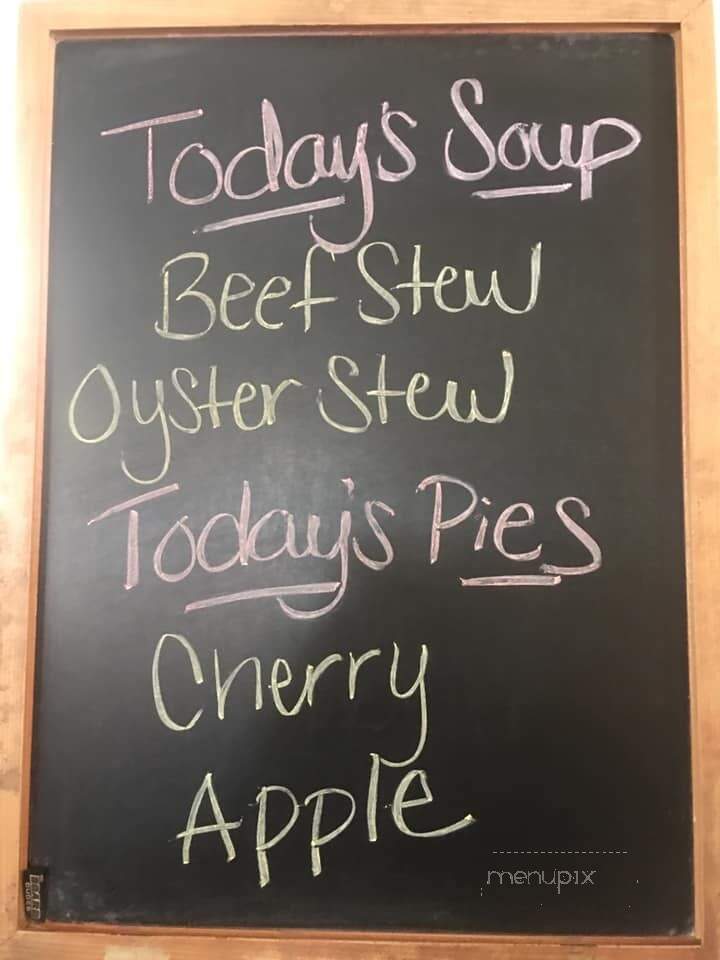 Today's Soup
Beef Stew
Oyster Stew
Today's Pies
Cherry
Apple
menupix